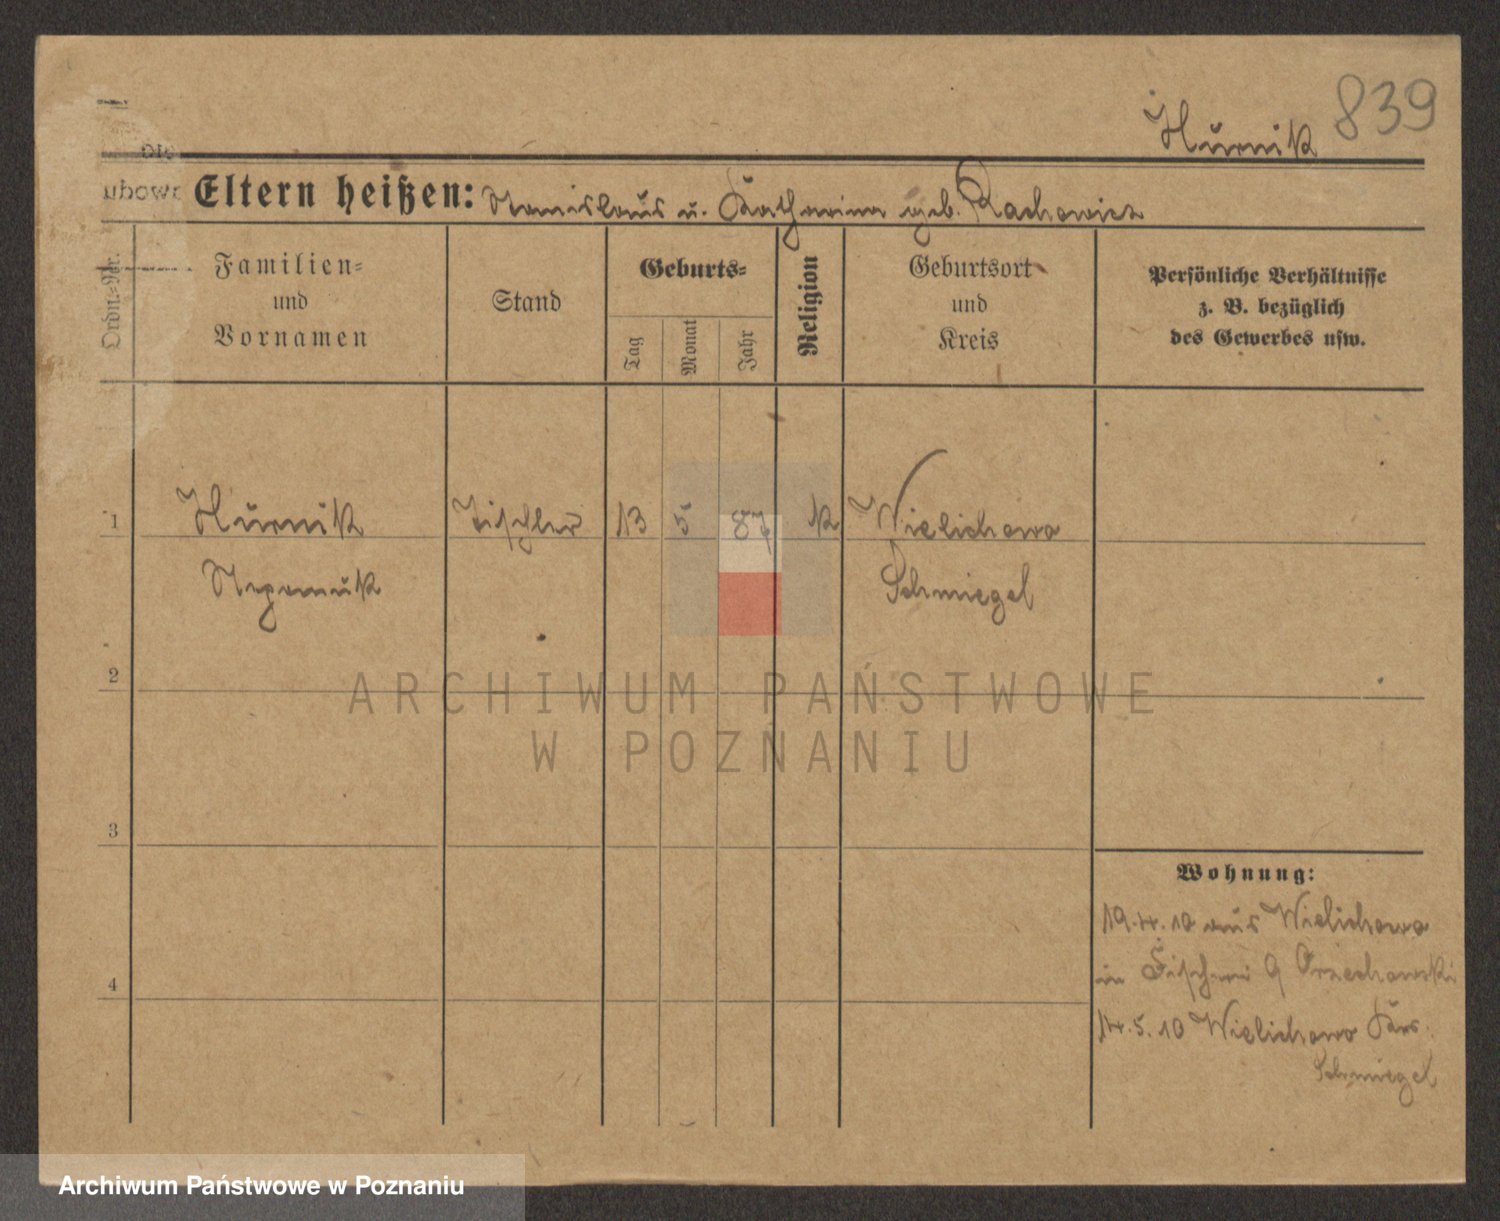 839
Hurnik
Eltern heißen: Stanislaus u. Katharina geb. Rachowicz
Ordn.-Nr.
Familien-
und
Vornamen
Stand
Geburts-
Tag
Monat
Jahr
Religion
Geburtsort
und
Kreis
Persönliche Verhältnisse
z. B. bezüglich
des Gewerbes usw.
1 Hurnik Tischler 13 5 87 k Wielichowo
Nepomuk Schmiegel
2
3
4
Wohnung:
19.4.10 aus Wielichowo
in Fischerei 9 Orzechowski
14.5.10 Wielichowo Krs.
Schmiegel
ARCHIWUM PAŃSTWOWE
W POZNANIU
Archiwum Państwowe w Poznaniu